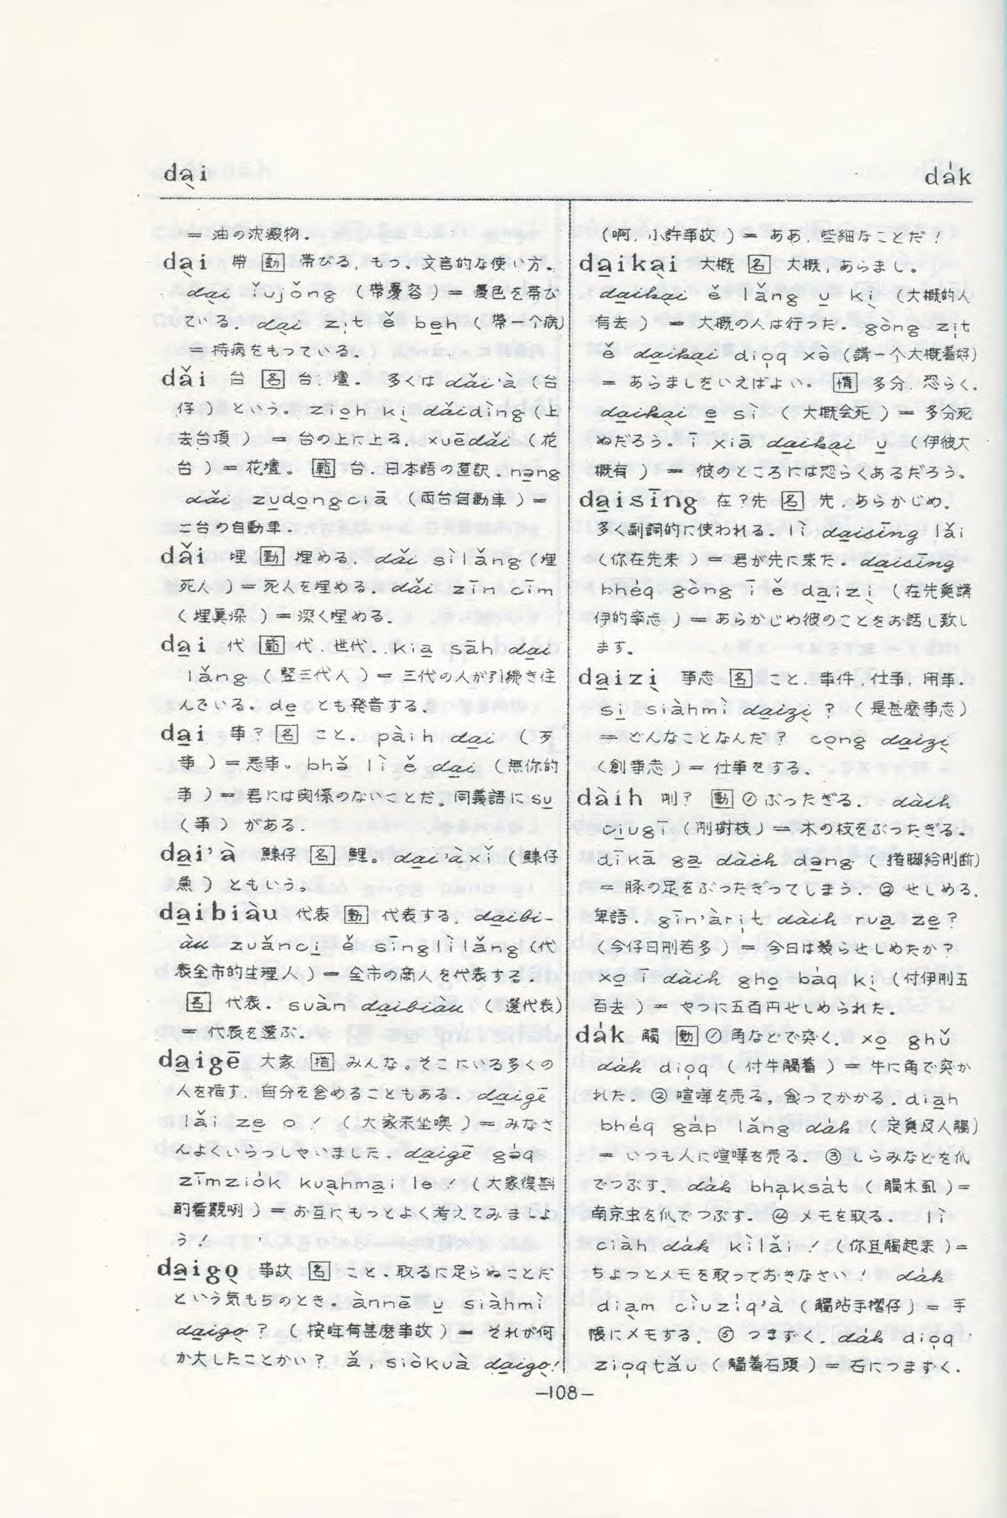 dại
da̍k
= 油の沈澱物.
dại 帯 [動] 帯びる, もつ. 文言的な使い方.
dại ǐujǒng (帶憂容) = 憂色を帯び
ている. dại zịt ě bẹh (帶一个病)
= 持病をもっている.
dǎi 台 [名] 台, 壇. 多くは dǎi'à (台
仔) という. zịoh kị dǎidìng (上
去台頂) = 台の上に上る. xuēdǎi (花
台) = 花壇. [範] 台. 日本語の直訳. nạng
dǎi zụdọngciā (両台自動車) =
二台の自動車.
dǎi 埋 [動] 埋める. dǎi sìlǎng (埋
死人) = 死人を埋める. dǎi zīn cīm
(埋眞深) = 深く埋める.
da̱i 代 [範] 代, 世代. kia̱ sāh da̱i
lǎng (竪三代人) = 三代の人が引続き住
んでいる. de̱ とも発音する.
da̱i 事? [名] こと. pàih da̱i (歹
事) = 悪事. bhǒ lì ě da̱i (無你的
事) = 君には関係のないことだ. 同義語に su̱
(事) がある.
da̱i'à 鯠仔 [名] 鯉. da̱i'àxǐ (鯠仔
魚) ともいう.
da̱ibiàu 代表 [動] 代表する. da̱ibi-
àu zuǎnci̱ ě sīnglìlǎng (代
表全市的生理人) = 全市の商人を代表する.
[名] 代表. suàn da̱ibiàu (選代表)
= 代表を選ぶ.
da̱igē 大家 [指] みんな. そこにいる多くの
人を指す. 自分を含めることもある. da̱igē
lǎi ze̱ o! (大家来坐喚) = みなさ
んよくいらっしゃいました. da̱igē
zīmziók kuạhma̱i le! (大家復斟
酌看覓咧) = お互にもっとよく考えてみましょ
う!
da̱igọ 事故 [名] こと. 取るに足らぬことだ
という気もちのとき. ànnē u̱ siàhmì
da̱igọ? (按哖有甚麽事故) = それが何
か大したことかい? ǎ, siòkuà da̱igọ!
(啊, 小許事故) = ああ, 些細なことだ!
da̱ikại 大概 [名] 大概, あらまし.
da̱ikại ě lǎng u̱ kị (大概的人
有去) = 大概の人は行った. gòng zịt
ě da̱ikại dịoq xè (講一个大概着好)
= あらましをいえばよい. [情] 多分, 恐らく.
da̱ikại e̱ sì (大概会死) = 多分死
ぬだろう. ī xiā da̱ikại u̱ (伊彼大
概有) = 彼のところには恐らくあるだろう.
da̱isīng 在?先 [名] 先, あらかじめ.
多く副詞的に使われる. lì da̱isīng lǎi
(你在先来) = 君が先に来た. da̱isīng
bhéq gòng ī ě da̱izị (在先要講
伊的事志) = あらかじめ彼のことをお話し致し
ます.
da̱izị 事志 [名] こと, 事件, 仕事, 用事.
si̱ siàhmì da̱izị? (是甚麽事志)
= どんなことなんだ? cọng da̱izị
(創事志) = 仕事をする.
dàih 刣? [動] ① ぶったぎる. dàih
ciụgī (刣樹枝) = 木の枝をぶったぎる.
= 豚の足をぶったぎってしまう. ② せしめる.
卑語. gīn'àrịt dàih rua̱ ze̱?
(今仔日刣若多) = 今日は幾らせしめたか?
xo̱ ī dàih gho̱ báq kị (付伊刣五
百去) = やつに五百円せしめられた.
da̍k 觸 [動] ① 角などで突く. xo̱ ghǔ
da̍k dịoq (付牛觸着) = 牛に角で突か
れた. ② 喧嘩を売る, 食ってかかる. dia̱h
bhéq gáp lǎng da̍k (定要及人觸)
= いつも人に喧嘩を売る. ③ しらみなどを爪
でつぶす. da̍k bha̍ksát (觸木虱) =
南京虫を爪でつぶす. ④ メモを取る. lì
ciàh da̍k kìlǎi! (你且觸起来) =
ちょっとメモを取っておきなさい! da̍k
diạm cìuzíq'à (觸站手摺仔) = 手
帳にメモする. ⑤ つまずく. da̍k dịoq
zịoqtǎu (觸着石頭) = 石につまずく.
–108–